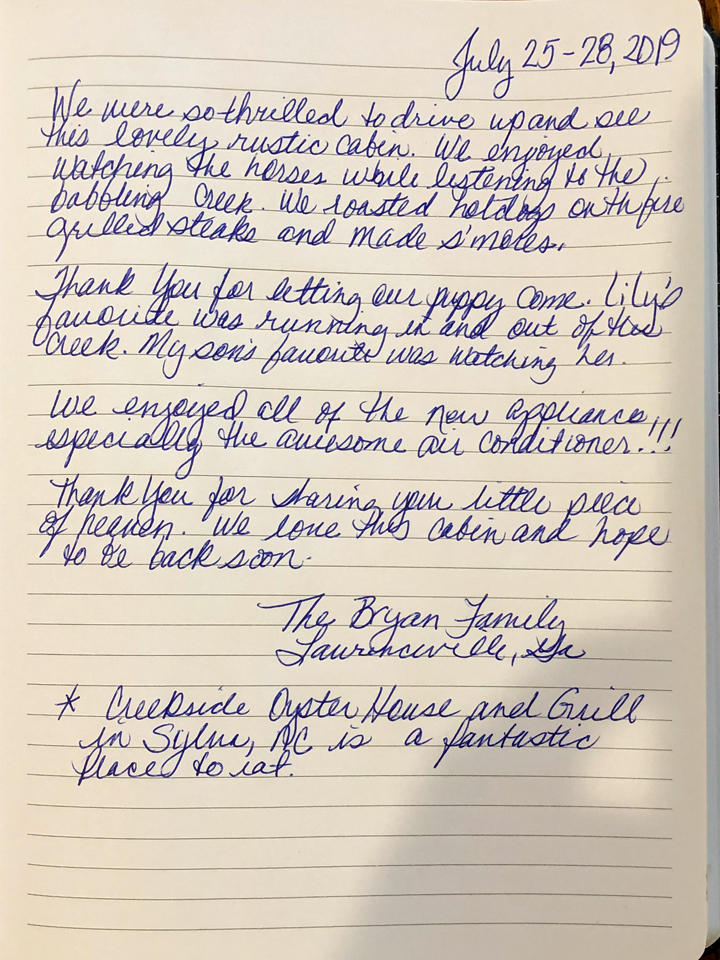 July 25-28, 2019
We were so thrilled to drive up and see
this lovely rustic cabin. We enjoyed
watching the horses while listening to the
babbling creek. We roasted hotdogs on th fire
grilled steaks and made s'mores.
Thank You for letting our puppy come. Lily's
favorite was running in and out of the
creek. My son's favorite was watching her.
We enjoyed all of the new appliances,
especially the awesome air conditioner!!!
Thank You for sharing your little piece
of heaven. We love this cabin and hope
to be back soon.
The Bryan Family
Lawrenceville, Ga
* Creekside Oyster House and Grill
in Sylva, NC is a fantastic
place to eat.